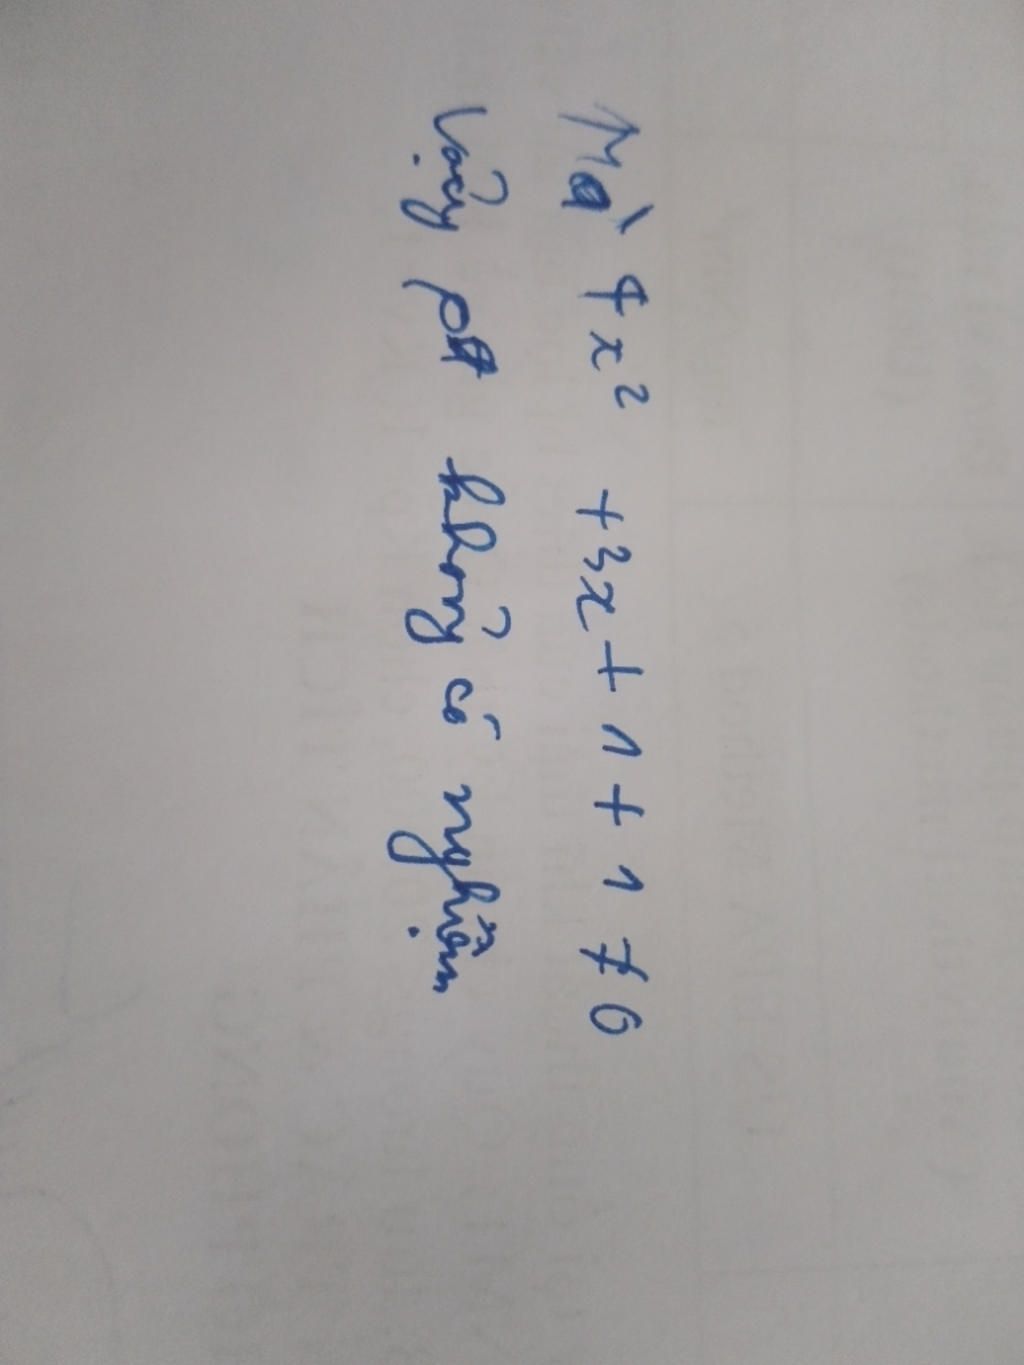 Mà 4x² + 3x + 1 + 1 ≠ 0
Vậy pt không có nghiệm